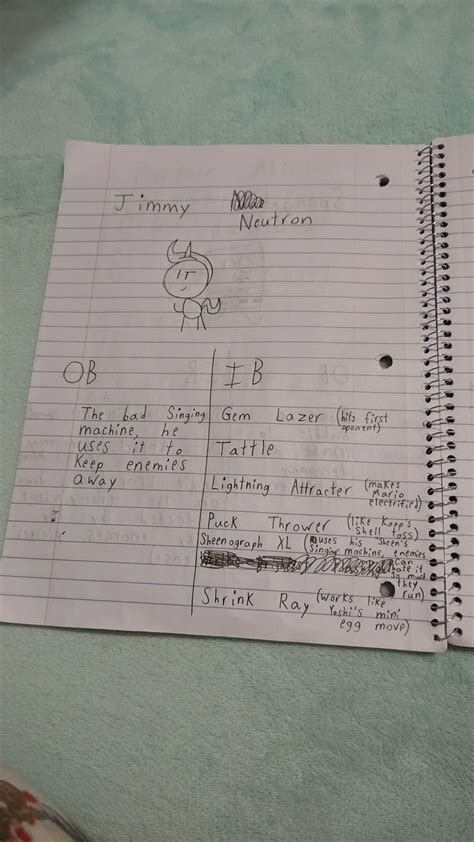 Jimmy
Neutron
OB
IB
The bad Singing
machine, he
uses it to
Keep enemies
away
Gem Lazer (hits first
oponent)
Tattle
Lightning Attracter (makes
Mario
electrified)
Puck Thrower (like Koops's
Shell Toss)
Sheenograph XL (uses his Sheen's
Singing machine, enemies
can
hate it
so much
they
run)
Shrink Ray (works like
Yoshi's mini
egg move)